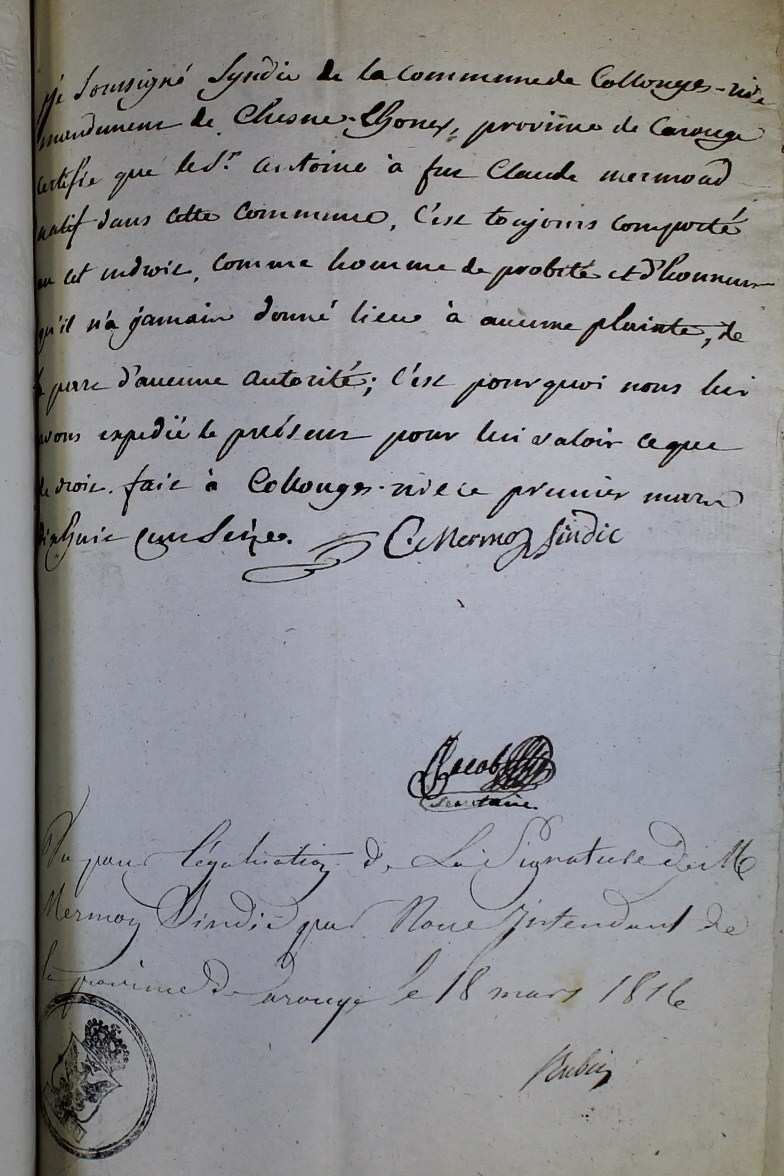 Je Soussigné Syndic de la commune de Collonges-
mandement de Chesne-Thonex, province de Carouge
certifie que le Sr. Antoine à feu Claude mermoud
natif dans cette Commune, C'est toujours comporté
en cet androit, comme homme de probité et d'honneur
qu'il n'a jamain donné lieu à aucune plainte, de
la part d'aucune autorité; C'est pourquoi nous lui
avons expedié le présent pour lui valoir ce que
de droit. fait à Collonges- ce premier mars
dix huit cent Seize. C. Mermoz Sindic
Jacob
Secretaire
Vu pour légalisation de La Signature de M
Mermoz Sindic par Nous Intendant de
la province de Carouge le 18 mars 1816